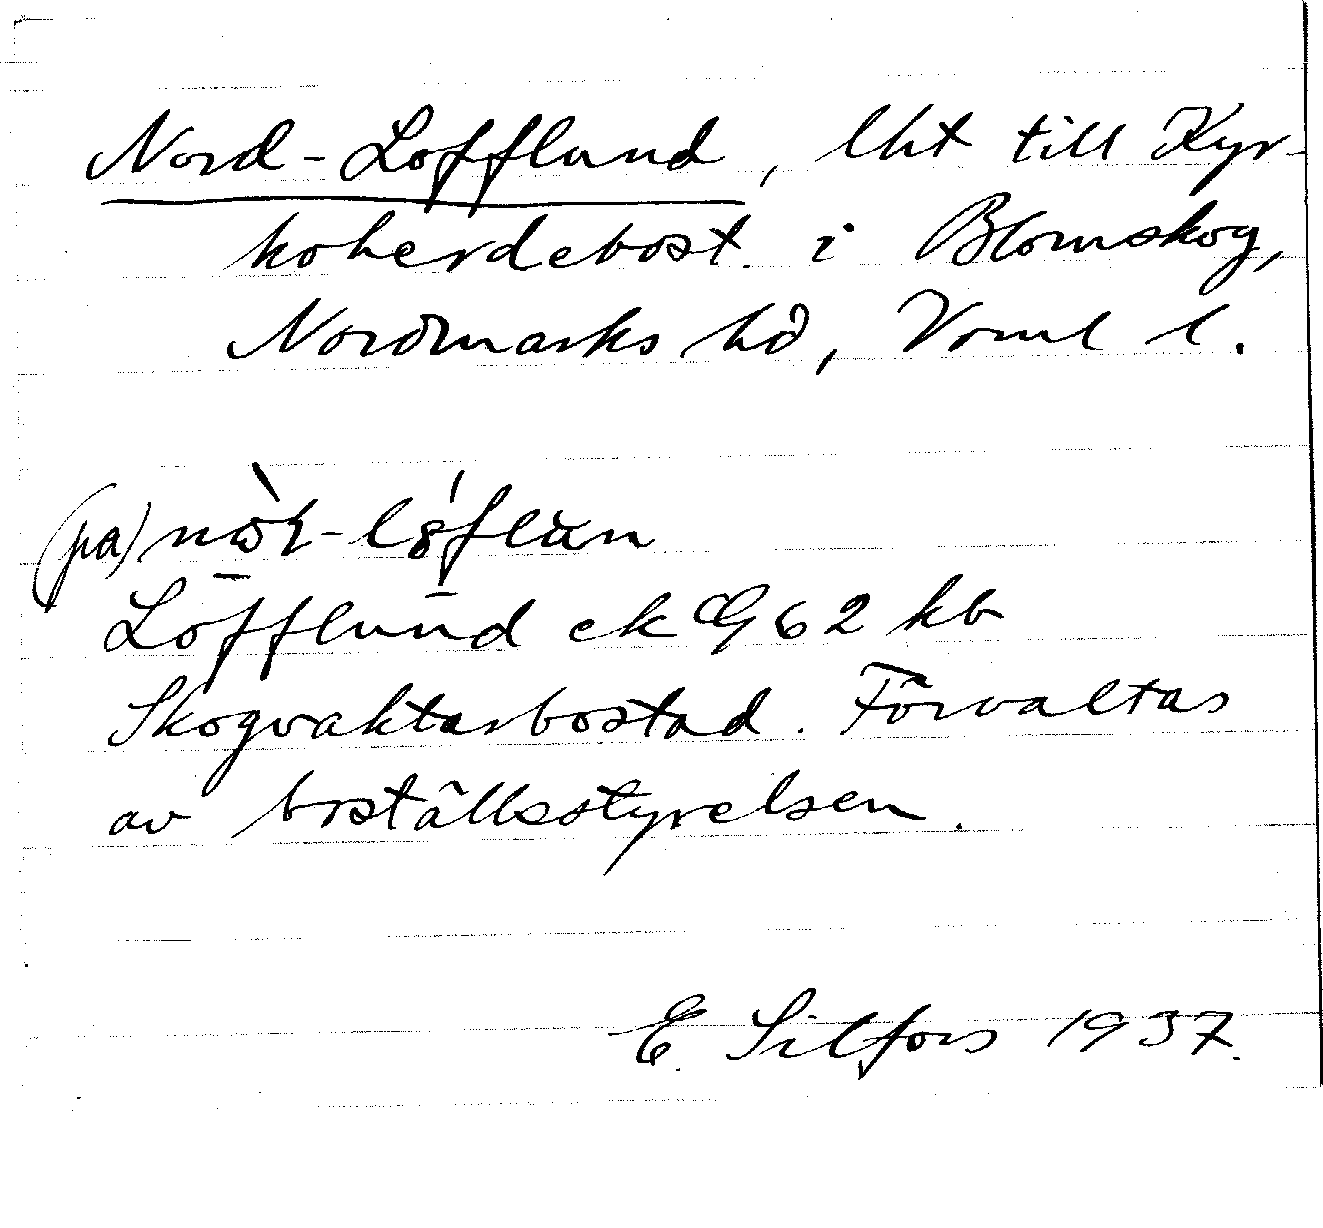 Nord-Loffland, lht till Kyr-
koherdebost. i Blomskog,
Nordmarks hd, Vrml l.
(pa)
Löfflund ek G 62 kb
Skogvaktarbostad. Förvaltas
av boställsstyrelsen.
E. Silfors 1937.